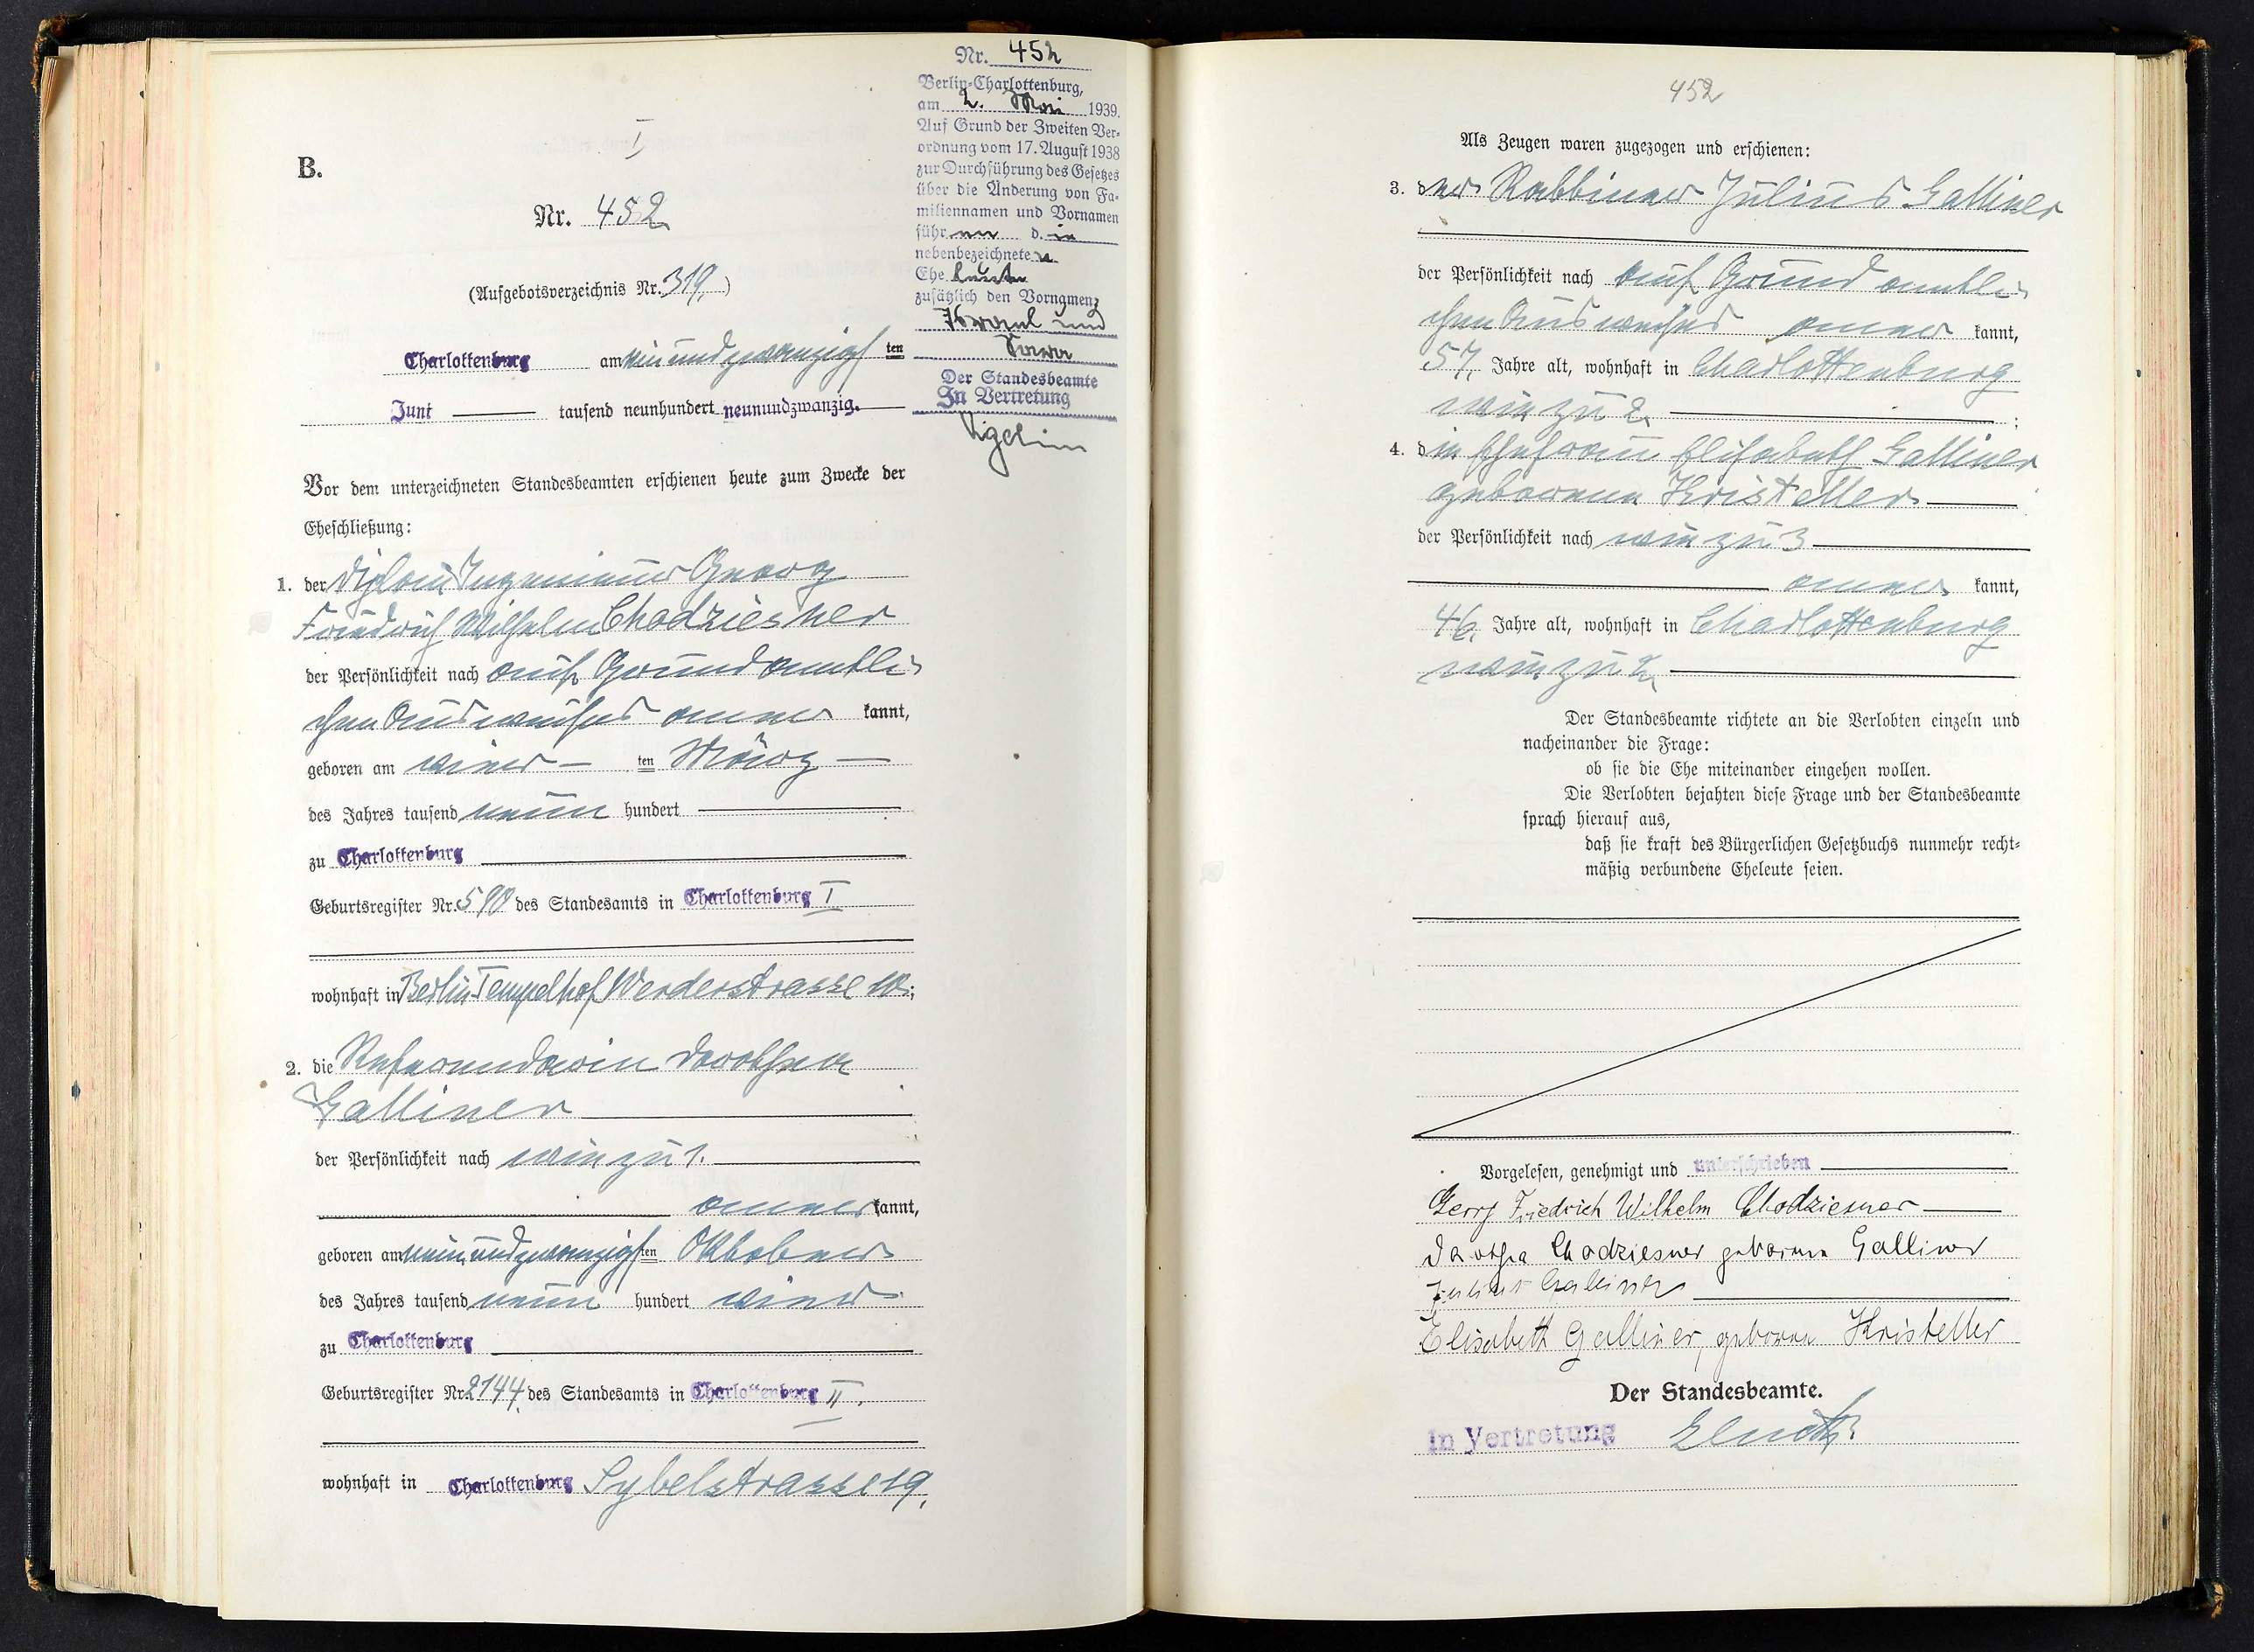 B.
I
Nr. 452
(Aufgebotsverzeichnis Nr. 319.)
Charlottenburg am ein und zwanzigsten
Juni tausend neunhundert neunundzwanzig.
Vor dem unterzeichneten Standesbeamten erschienen heute zum Zwecke der
Eheschließung:
1. der Diplom Ingenieur Georg
Friedrich Wilhelm Chodziesner
der Persönlichkeit nach auf Grund amtli-
chen Ausweises aner kannt,
geboren am vier ten März
des Jahres tausend neun hundert
zu Charlottenburg
Geburtsregister Nr. 590 des Standesamts in Charlottenburg I
wohnhaft in Berlin Tempelhof, Werderstrasse 10;
2. die Referendarin Dorothea
Galliner
der Persönlichkeit nach wie zu 1.
aner kannt,
geboren am neun und zwanzigsten Oktober
des Jahres tausend neun hundert vier
zu Charlottenburg
Geburtsregister Nr. 2144 des Standesamts in Charlottenburg II.
wohnhaft in Charlottenburg Sybelstrasse 19.
Nr. 452
Berlin-Charlottenburg,
am 2. Mai 1939.
Auf Grund der Zweiten Ver-
ordnung vom 17. August 1938
zur Durchführung des Gesetzes
über die Änderung von Fa-
miliennamen und Vornamen
führen die
nebenbezeichneten
Eheleute
zusätzlich den Vornamen
Israel und
Sara
Der Standesbeamte
In Vertretung
452
Als Zeugen waren zugezogen und erschienen:
3. der Rabbiner Julius Galliner
der Persönlichkeit nach auf Grund amtli-
chen Ausweises aner kannt,
57 Jahre alt, wohnhaft in Charlottenburg
wie zu 2. ;
4. die Ehefrau Elisabeth Galliner
geborene Kristeller
der Persönlichkeit nach wie zu 3
aner kannt,
46 Jahre alt, wohnhaft in Charlottenburg
wie zu 2.
Der Standesbeamte richtete an die Verlobten einzeln und
nacheinander die Frage:
ob sie die Ehe miteinander eingehen wollen.
Die Verlobten bejahten diese Frage und der Standesbeamte
sprach hierauf aus,
daß sie kraft des Bürgerlichen Gesetzbuchs nunmehr recht-
mäßig verbundene Eheleute seien.
Vorgelesen, genehmigt und unterschrieben
Georg Friedrich Wilhelm Chodziesner
Dorothea Chodziesner geborene Galliner
Julius Galliner
Elisabeth Galliner, geborene Kristeller
Der Standesbeamte.
In Vertretung